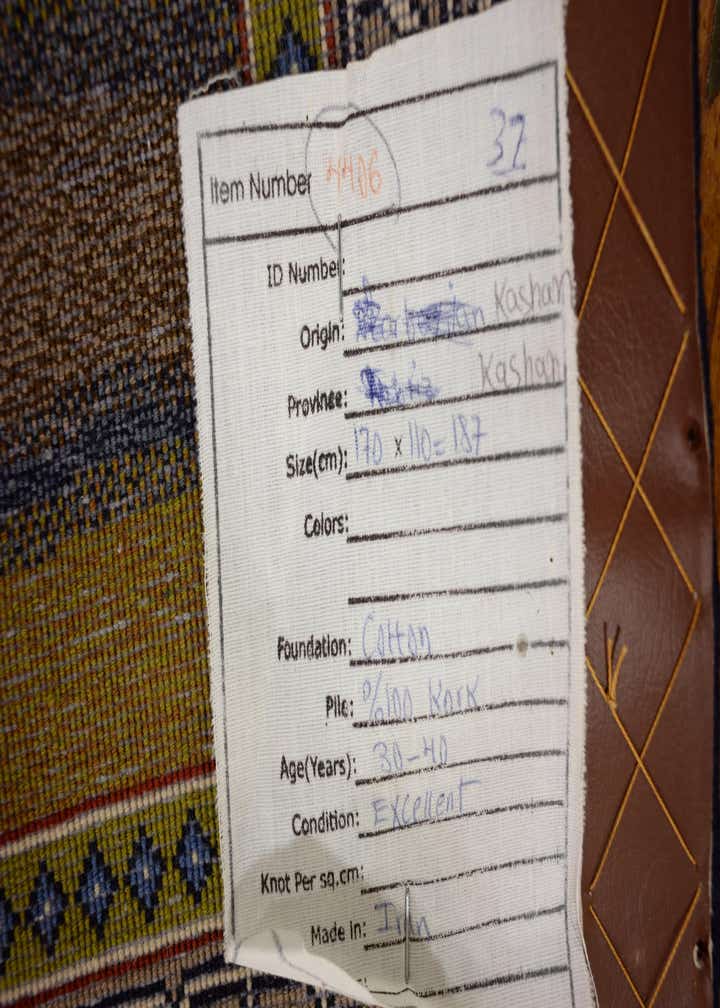 Item Number 4406 37
ID Number:
Origin: Kashan
Province: Kashan
Size(cm): 170 x 110=187
Colors:
Foundation: Cotton
Pile: %100 Kork
Age(Years): 30-40
Condition: Excellent
Knot Per sq.cm:
Made in: Iran